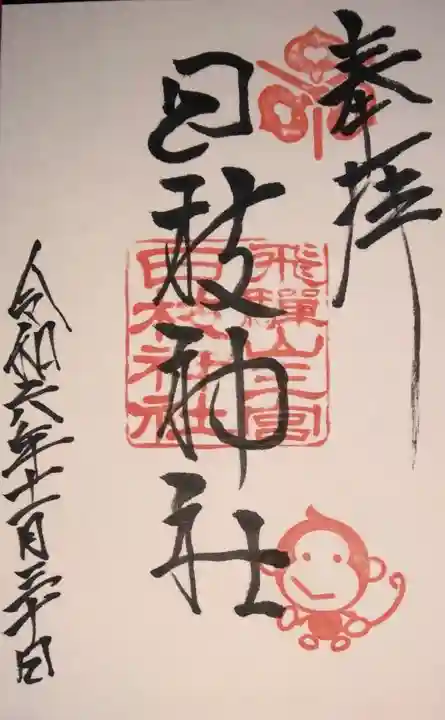 奉拝
飛騨山王宮
日枝神社
日枝神社
令和六年十一月三十日